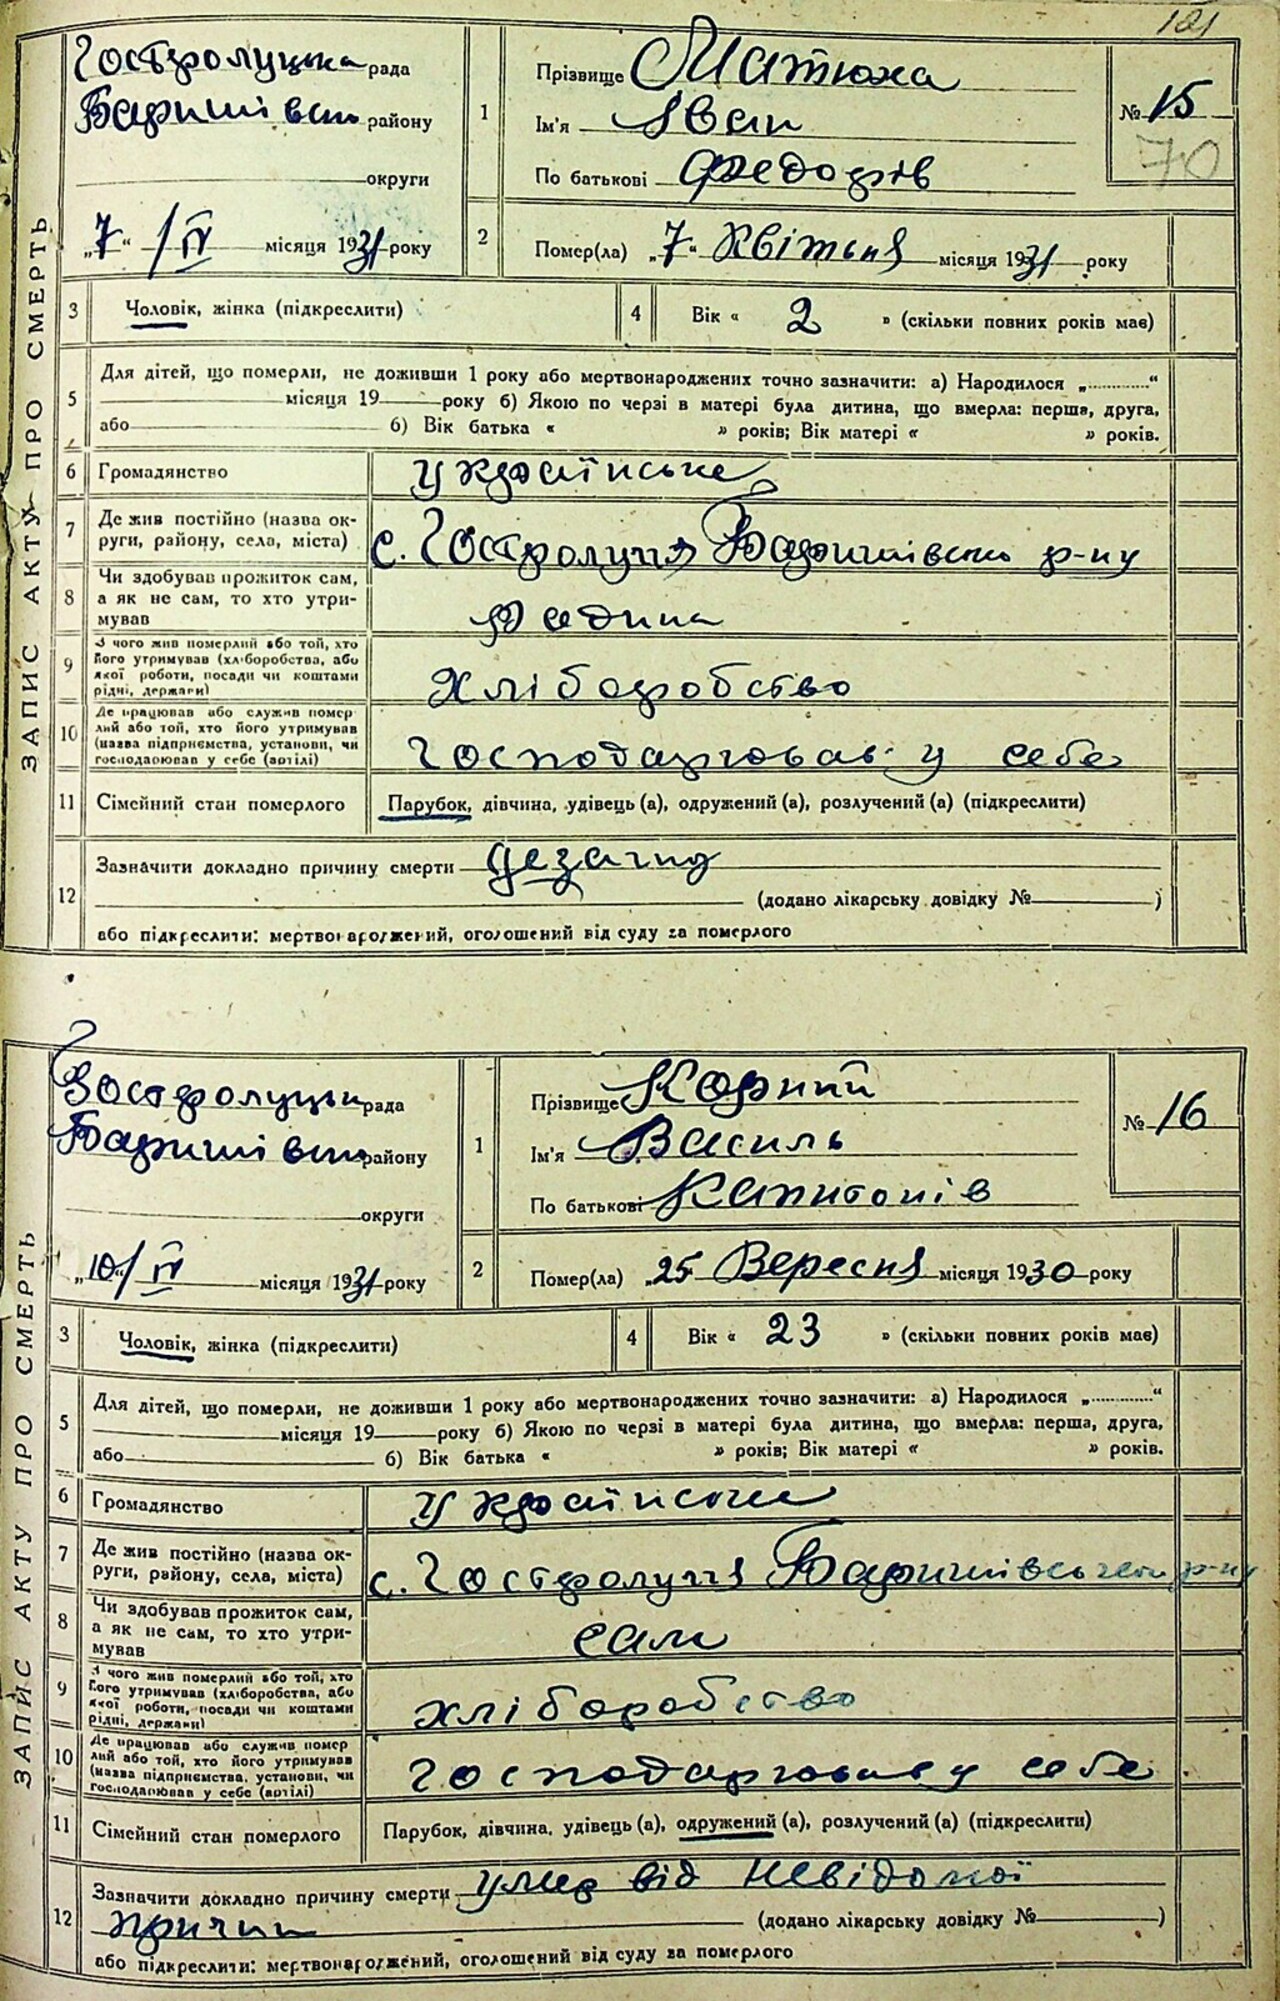 121
ЗАПИС АКТУ ПРО СМЕРТЬ
Гостролуцька рада
Баришівськ району
округи
„7“ /IV місяця 1931 року
1
Прізвище Матюха
Ім'я Іван
По батькові Федорів
№ 15
70
2
Помер(ла) „7“ Квітня місяця 1931 року
3 Чоловік, жінка (підкреслити)
4 Вік « 2 » (скільки повних років має)
5 Для дітей, що померли, не доживши 1 року або мертвонароджених точно зазначити: а) Народилося „............“
місяця 19 року б) Якою по черзі в матері була дитина, що вмерла: перша, друга,
або б) Вік батька « » років; Вік матері « » років.
6 Громадянство Українське
7 Де жив постійно (назва ок-
руги, району, села, міста) с. Гостролуччя Баришівськ р-ну
8 Чи здобував прожиток сам,
а як не сам, то хто утри-
мував родина
9 З чого жив померлий або той, хто
його утримував (хліборобства, або
якої роботи, посади чи коштами
рідні, держави) хліборобство
10 Де працював або служив помер
лий або той, хто його утримував
(назва підприємства, установи, чи
господарював у себе (артілі) господарював у себе
11 Сімейний стан померлого Парубок, дівчина, удівець (а), одружений (а), розлучений (а) (підкреслити)
12 Зазначити докладно причину смерти
(додано лікарську довідку № )
або підкреслити: мертвонароджений, оголошений від суду за померлого
ЗАПИС АКТУ ПРО СМЕРТЬ
Гостролуцьк рада
Баришівськ району
округи
„10“/IV місяця 1931 року
1
Прізвище Корний
Ім'я Василь
По батькові Капитонів
№ 16
2
Помер(ла) „25 Вересня місяця 1930 року
3 Чоловік, жінка (підкреслити)
4 Вік « 23 » (скільки повних років має)
5 Для дітей, що померли, не доживши 1 року або мертвонароджених точно зазначити: а) Народилося „............“
місяця 19 року б) Якою по черзі в матері була дитина, що вмерла: перша, друга,
або б) Вік батька « » років; Вік матері « » років.
6 Громадянство Українське
7 Де жив постійно (назва ок-
руги, району, села, міста) с. Гостролуччя Баришівськ р-ну
8 Чи здобував прожиток сам,
а як не сам, то хто утри-
мував сам
9 З чого жив померлий або той, хто
його утримував (хліборобства, або
якої роботи, посади чи коштами
рідні, держави) хліборобство
10 Де працював або служив помер
лий або той, хто його утримував
(назва підприємства, установи, чи
господарював у себе (артілі) господарював у себе
11 Сімейний стан померлого Парубок, дівчина, удівець (а), одружений (а), розлучений (а) (підкреслити)
12 Зазначити докладно причину смерти умер від невідомої
причин
(додано лікарську довідку № )
або підкреслити: мертвонароджений, оголошений від суду за померлого